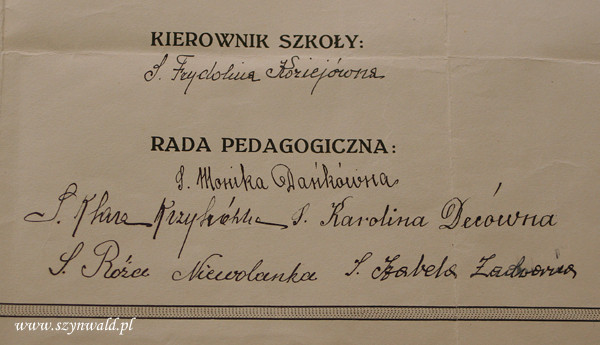 KIEROWNIK SZKOŁY:
S. Frydolina Koziejówna
RADA PEDAGOGICZNA:
S. Monika Dańkówna
S. Klara S. Karolina Decówna
S. Róża Niewolanka S. Izabela
www.szynwald.pl